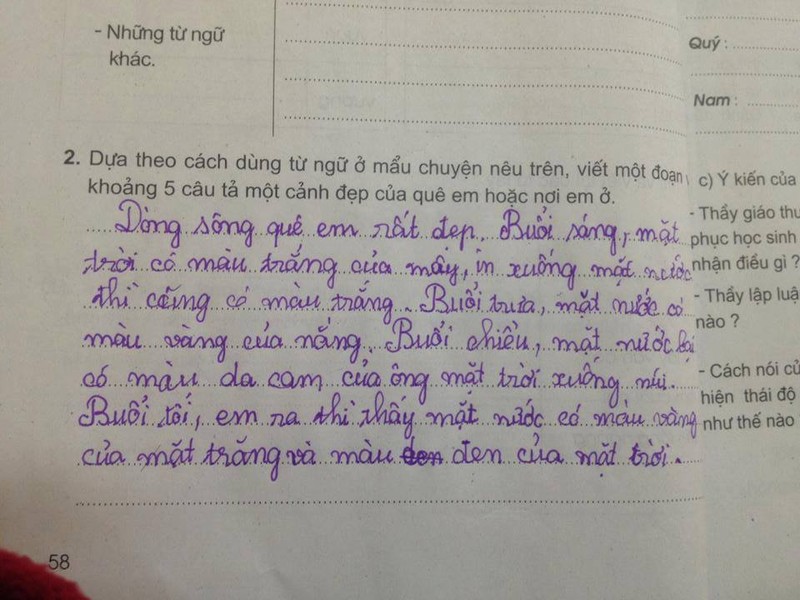 - Những từ ngữ
khác.
Quý :
Nam :
2. Dựa theo cách dùng từ ngữ ở mẩu chuyện nêu trên, viết một đoạn
khoảng 5 câu tả một cảnh đẹp của quê em hoặc nơi em ở.
Dòng sông quê em rất đẹp. Buổi sáng, mặt
trời có màu trắng của mây, in xuống mặt nước
thì cũng có màu trắng. Buổi trưa, mặt nước có
màu vàng của nắng. Buổi chiều, mặt nước lại
có màu da cam của ông mặt trời xuống núi.
Buổi tối, em ra thì thấy mặt nước có màu vàng
của mặt trăng và màu đen của mặt trời.
c) Ý kiến của
- Thầy giáo thu
phục học sinh
nhận điều gì ?
- Thầy lập luậ
nào ?
- Cách nói củ
hiện thái độ
như thế nào
58